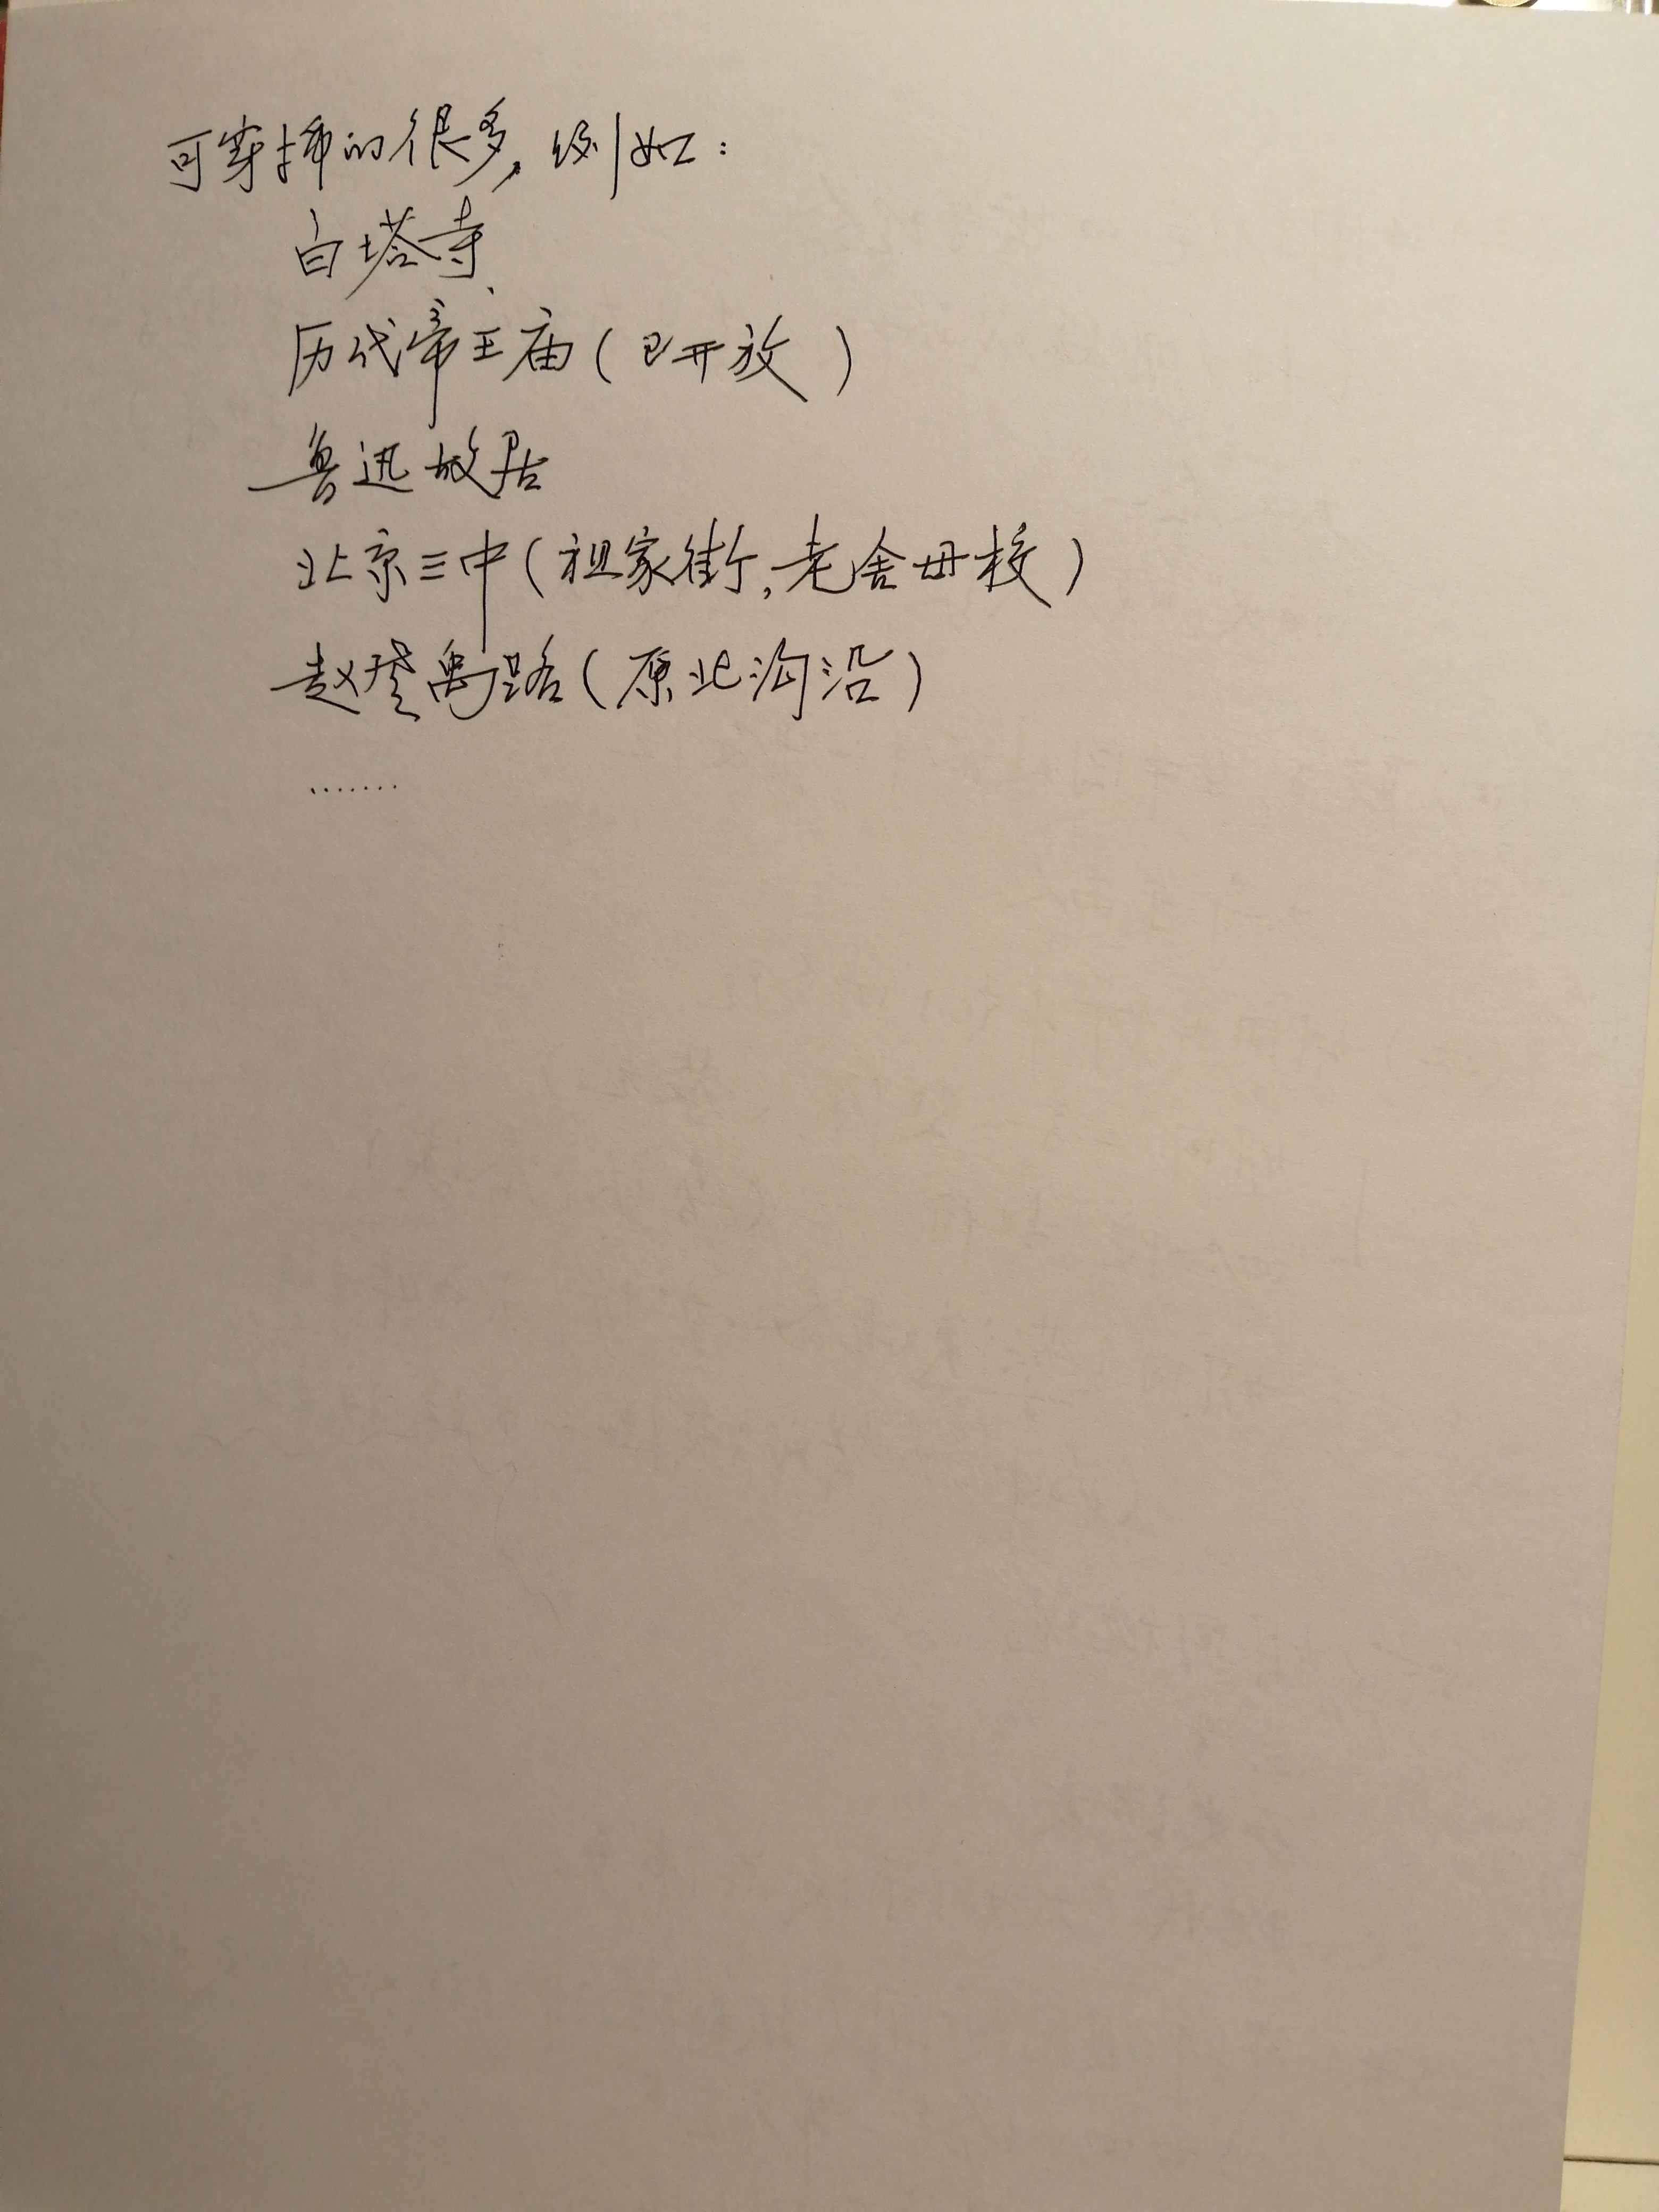 可穿插的很多，例如：
白塔寺
历代帝王庙（已开放）
鲁迅故居
北京三中（祖家街，老舍母校）
赵登禹路（原北沟沿）
.......